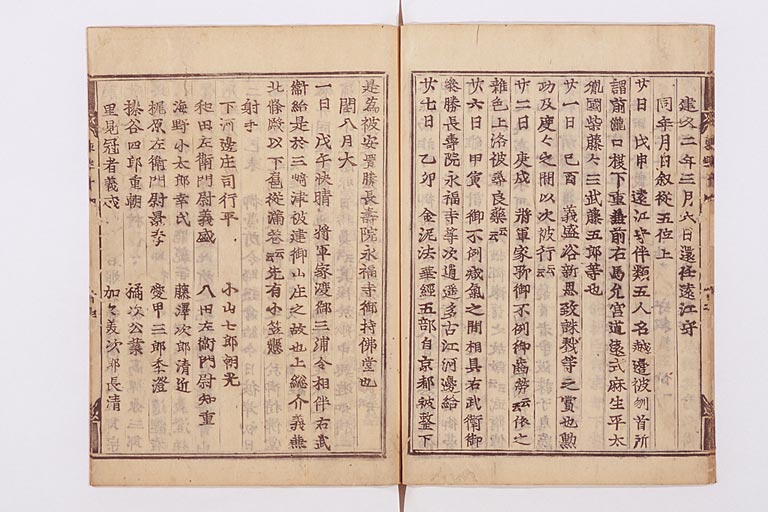 建久二年三月六日還任遠江守
同年月日叙從五位上
廿日 戊申 遠江守伴類五人名越邊被刎首所
謂前瀧口榎下重兼前右馬允宮道遠式麻生平太
胤國柴藤三武藤五郎等也
廿一日 己酉 義盛浴新恩致誅戮等之賞也勲
功及度々之間以次被行云云
廿二日 庚戌 將軍家聊御不例御齒勞云云依之
雜色上洛被尋良藥云云
廿六日 甲寅 御不例減氣之間相具右武衛御
參勝長壽院永福寺等次逍遥多古江河邊給
廿七日 乙卯 金泥法華經五部自京都被整下
是爲被安置勝長壽院永福寺御持佛堂也
閏八月大
一日 戊午 快晴 將軍家渡御三浦令相伴右武
衞給是於三崎津被建御山庄之故也上総介義兼
北條殿以下扈從濟々云云先有小笠懸
射手
下河邊庄司行平 小山七郎朝光
和田左衞門尉義盛 八田左衞門尉知重
海野小太郎幸氏 藤澤次郎清近
梶原左衞門尉景季 愛甲三郎季澄
榛谷四郎重朝 橘次公業
里見冠者義成 加々美次郎長清